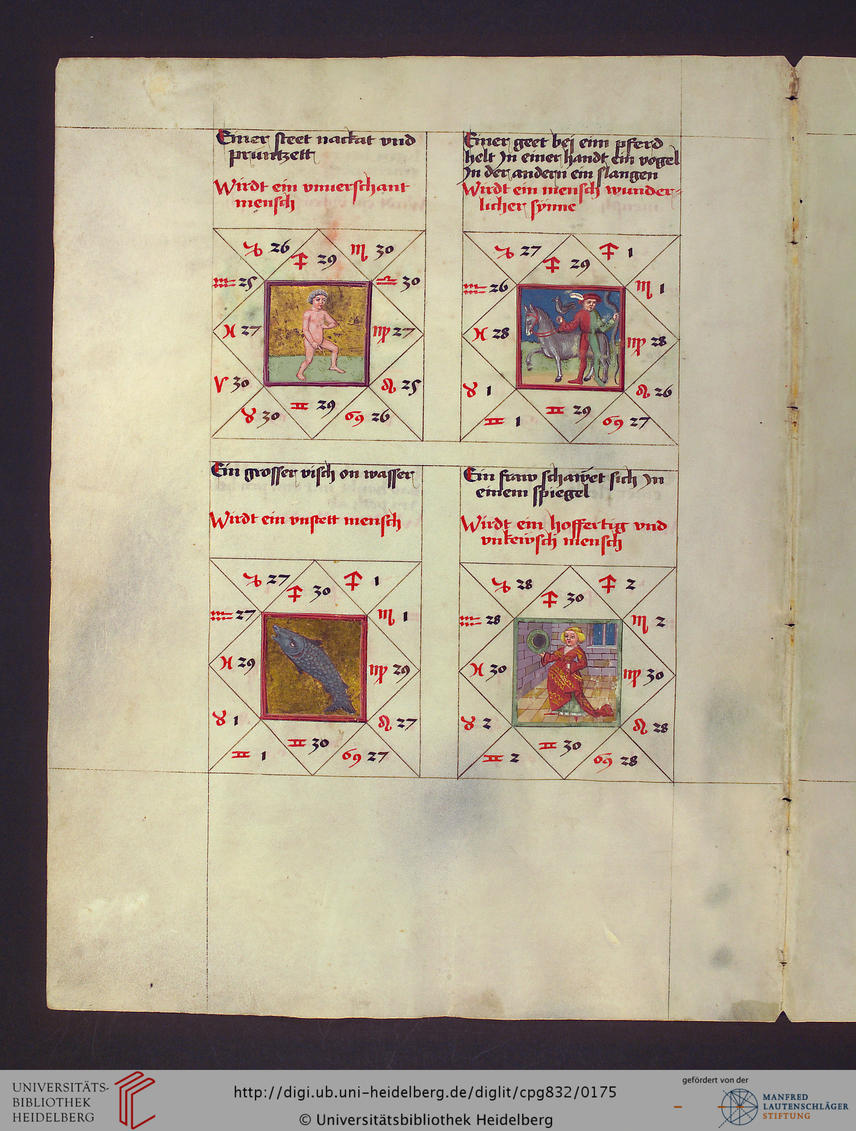 Einer steet nackat vnd
pruntzett
Wirdt ein vnuerschant
mensch
♑ 26
♐ 29
♏ 30
♒ 25
♎ 30
♓ 27
♍ 27
♈ 30
♌ 25
♉ 30
♊ 29
♋ 26
Einer geet bei eim pferd
helt in einer handt ein vogel
in der andern ein slangen
Wirdt ein mensch wunder-
licher synne
♑ 27
♐ 29
♐ 1
♒ 26
♏ 1
♓ 28
♍ 28
♉ 1
♌ 26
♊ 1
♊ 29
♋ 27
Ein grosser visch on wasser
Wirdt ein vnstett mensch
♑ 27
♐ 30
♐ 1
♒ 27
♏ 1
♓ 29
♍ 29
♉ 1
♌ 27
♊ 1
♊ 30
♋ 27
Ein fraw schawet sich in
einem spiegel
Wirdt ein hoffertig vnd
vnkewsch mensch
♑ 28
♐ 30
♐ 2
♒ 28
♏ 2
♓ 30
♍ 30
♉ 2
♌ 28
♊ 2
♊ 30
♋ 28
UNIVERSITÄTS-
BIBLIOTHEK
HEIDELBERG
http://digi.ub.uni-heidelberg.de/diglit/cpg832/0175
© Universitätsbibliothek Heidelberg
gefördert von der
MANFRED
LAUTENSCHLÄGER
STIFTUNG